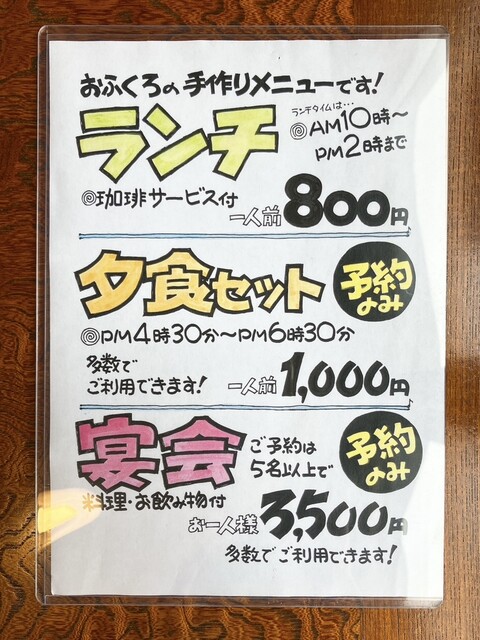 おふくろの手作りメニューです!
ランチ
ランチタイムは…
◎AM10時〜
PM2時まで
◎珈琲サービス付
一人前800円
夕食セット
予約
のみ
◎PM4時30分〜PM6時30分
多数で
ご利用できます!
一人前1,000円
宴会
ご予約は
5名以上で
予約
のみ
料理・お飲み物付
お一人様3,500円
多数でご利用できます!